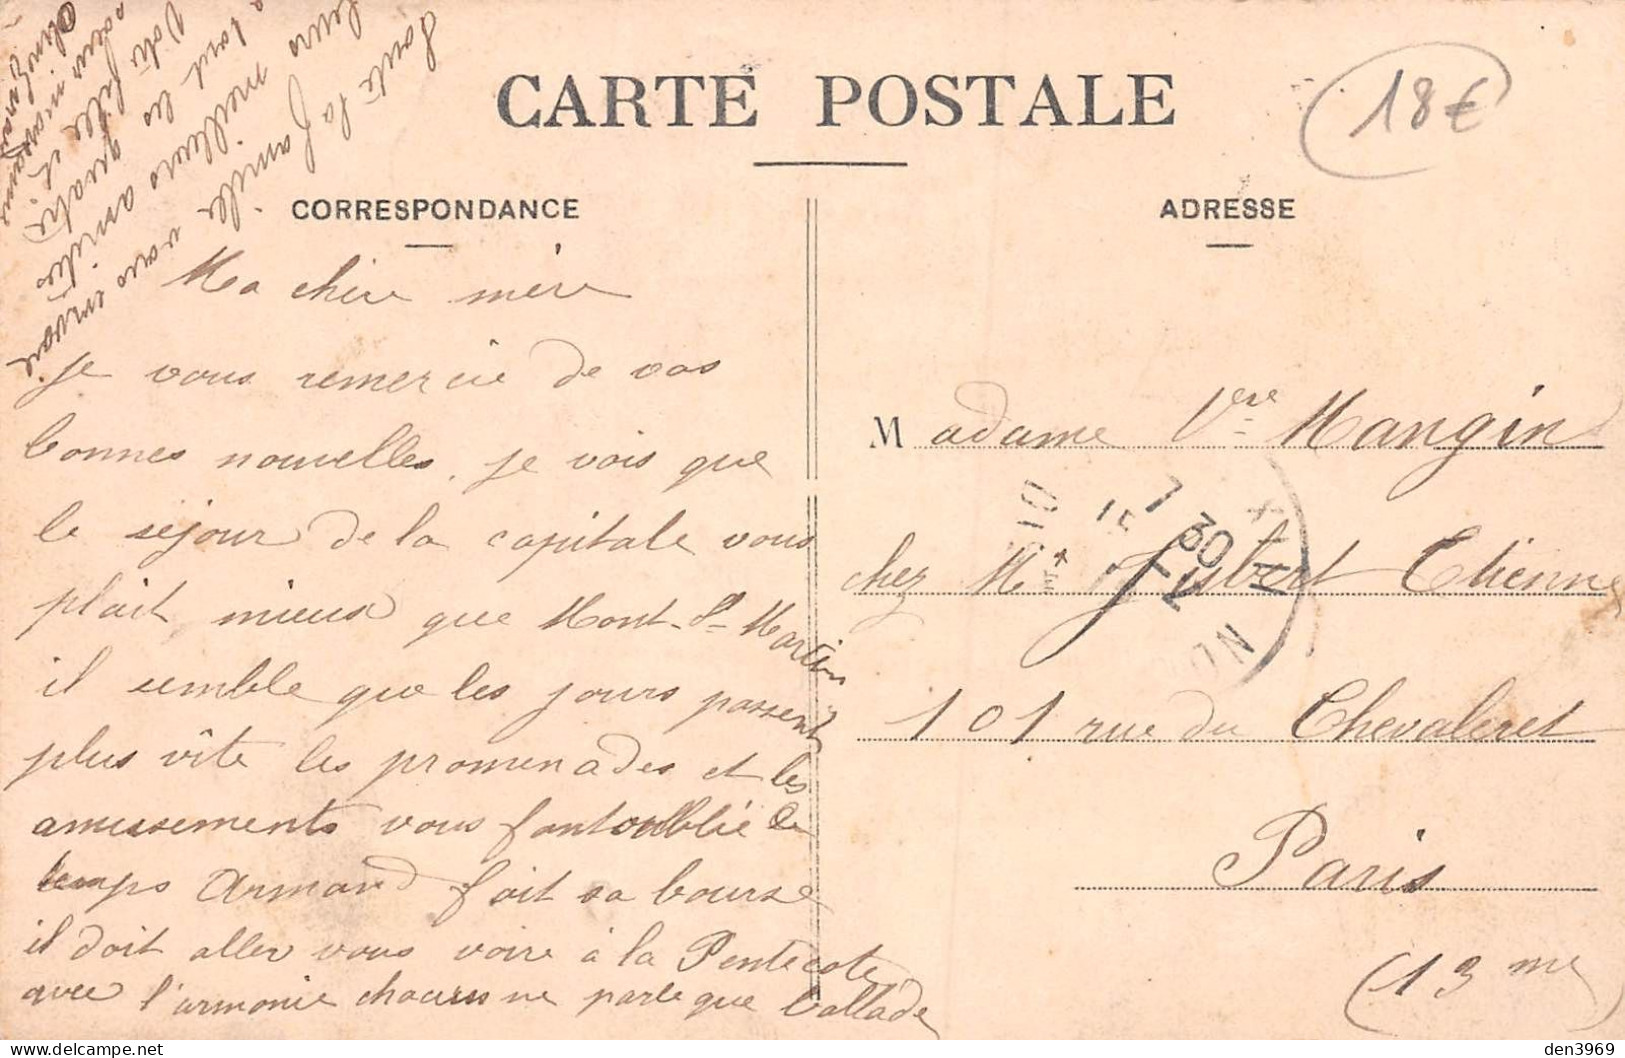 CARTE POSTALE
18€
CORRESPONDANCE
ADRESSE
Ma chère mère
je vous remercie de vos
bonnes nouvelles, je vois que
le séjour de la capitale vous
plait mieux que Mont-St-Martin
il semble que les jours passent
plus vîte les promenades et les
amusements vous font oublié le
temps Armand fait sa bourse
il doit aller vous voire à la Pentecôte
avec l'armonie chacuns ne parle que ballade
Toute la famille vous envoie
leurs meilleurs amitiés
a tout les quatre
Votre fille et
Madame Vve Mangin
chez Mr Jusbert Etienne
101 rue du Chevaleret
Paris
(13me
7 30
den3969